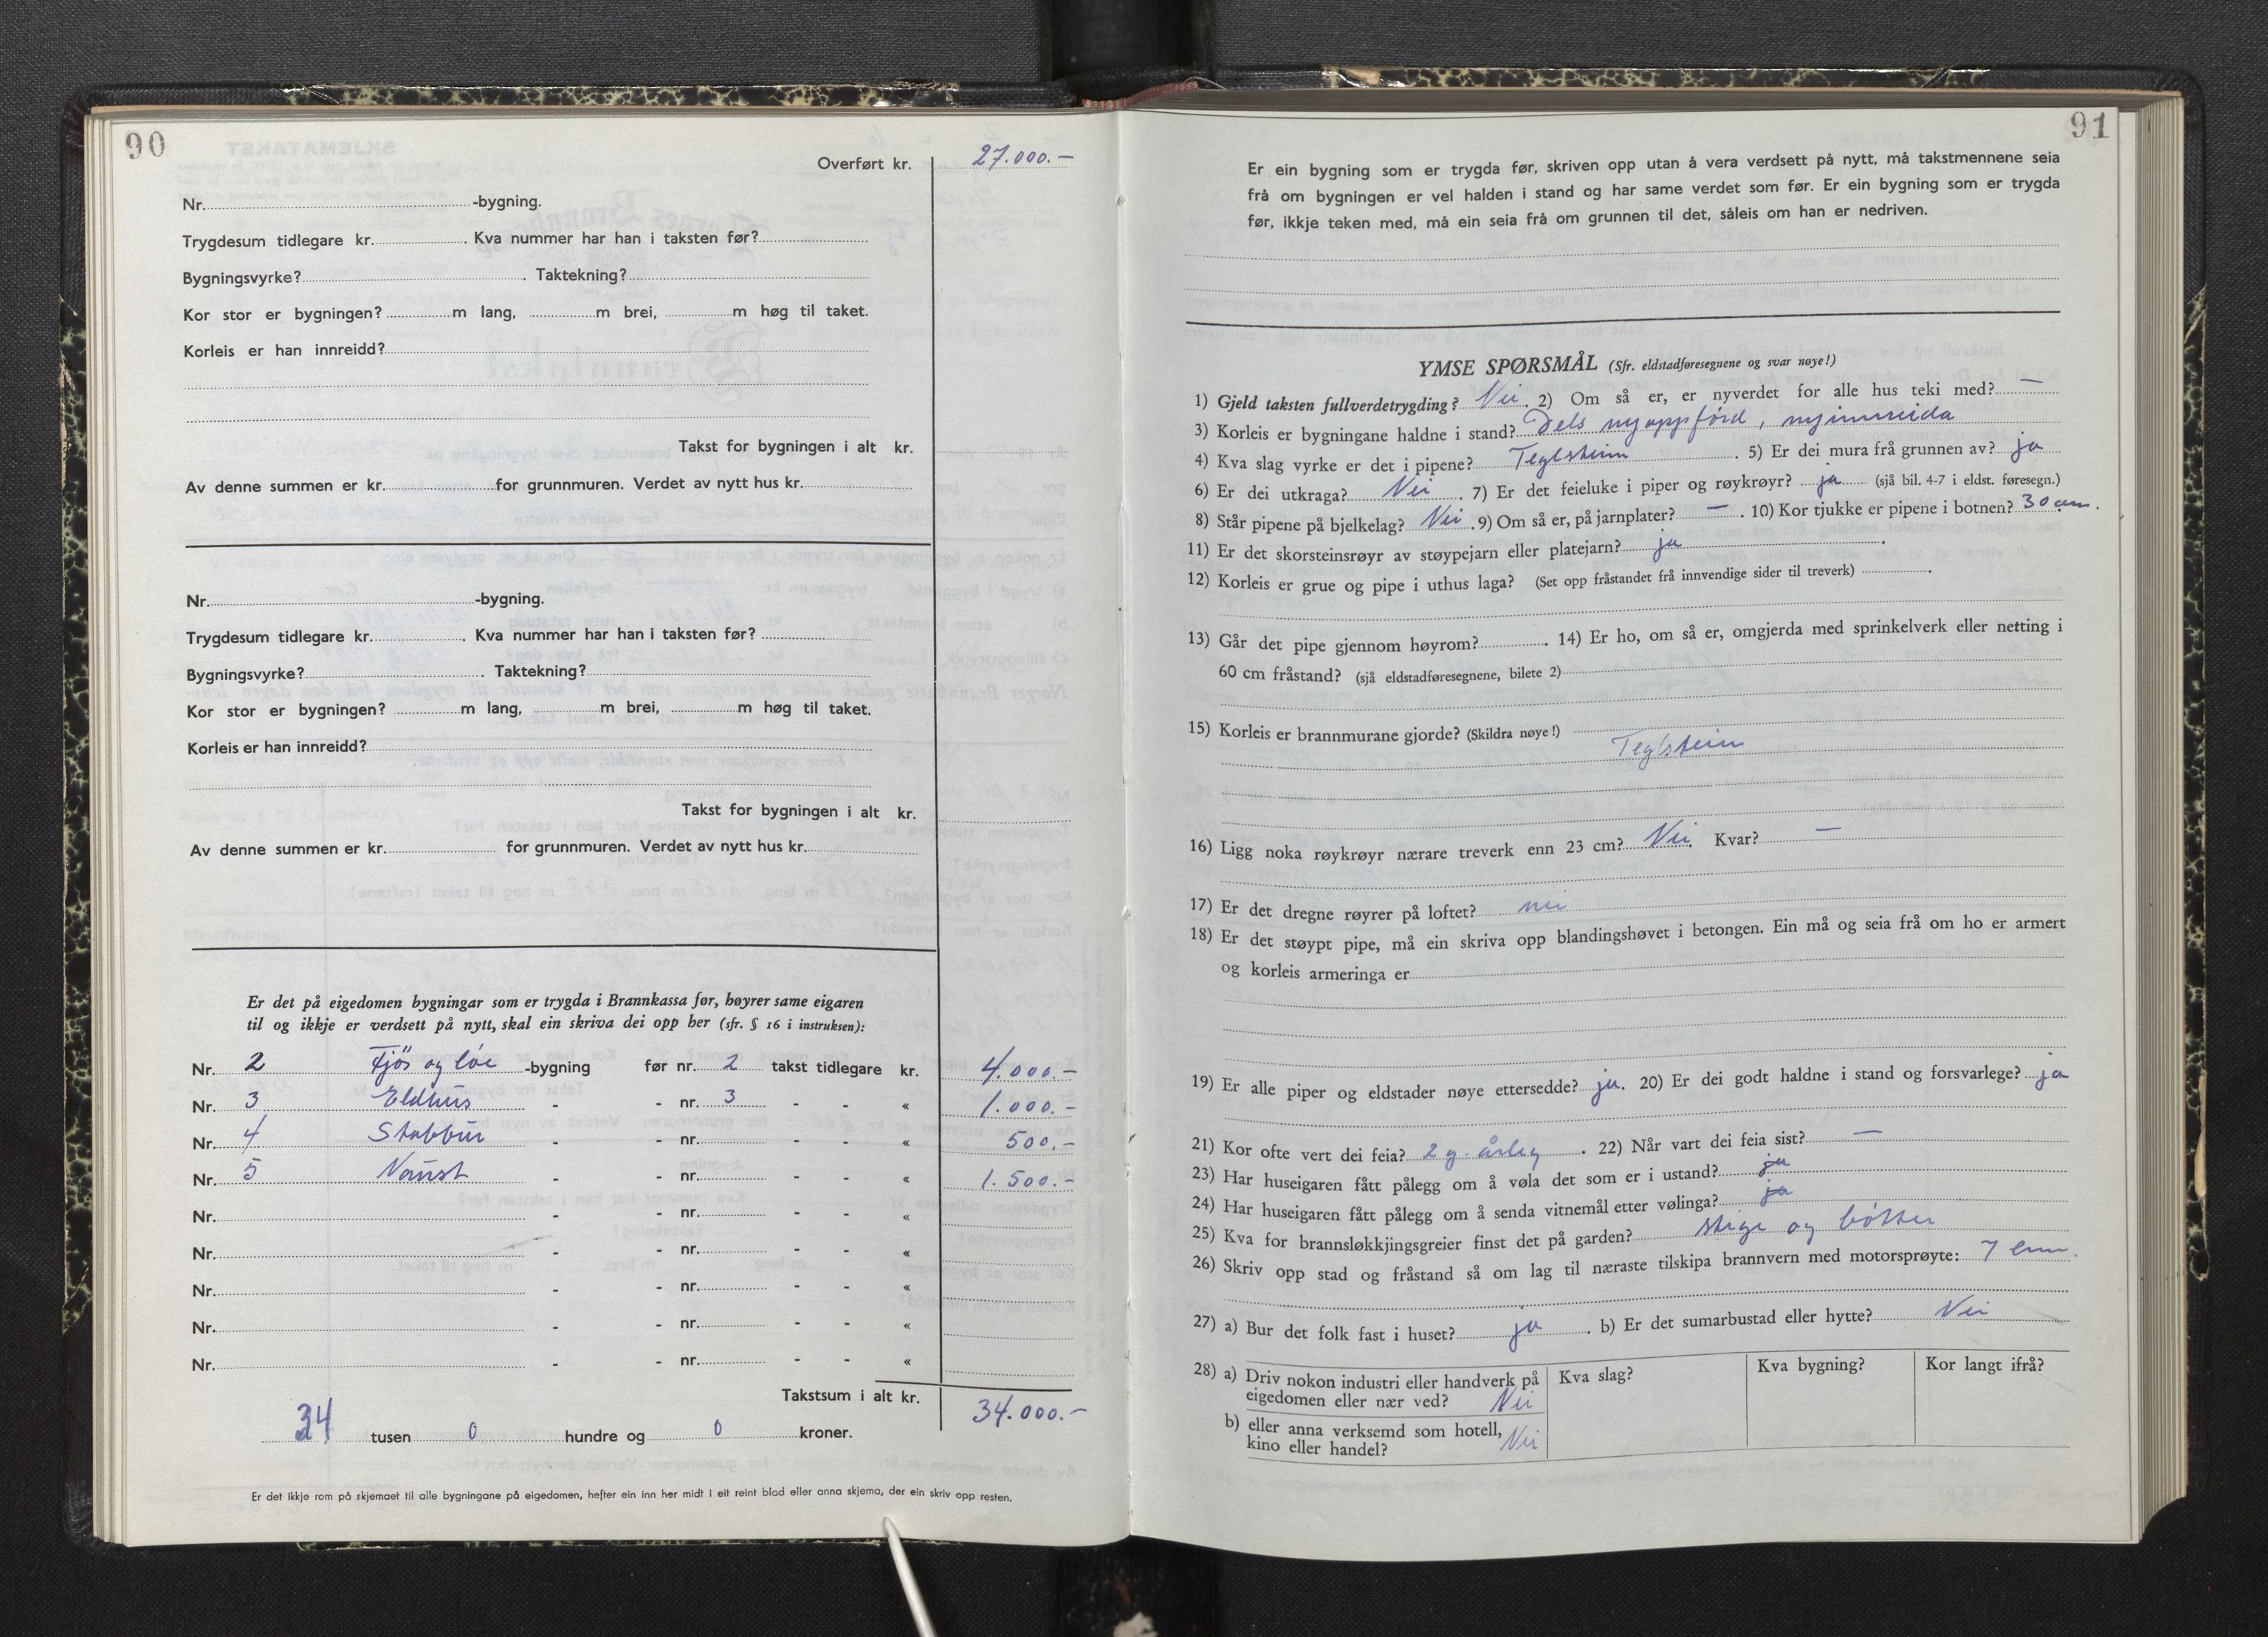 90
Overført kr. 27.000.–
Nr. -bygning.
Trygdesum tidlegare kr. . Kva nummer har han i taksten før?
Bygningsvyrke? . Taktekning?
Kor stor er bygningen? m lang, m brei, m høg til taket.
Korleis er han innreidd?
Takst for bygningen i alt kr.
Av denne summen er kr. for grunnmuren. Verdet av nytt hus kr.
Nr. -bygning.
Trygdesum tidlegare kr. . Kva nummer har han i taksten før?
Bygningsvyrke? . Taktekning?
Kor stor er bygningen? m lang, m brei, m høg til taket.
Korleis er han innreidd?
Takst for bygningen i alt kr.
Av denne summen er kr. for grunnmuren. Verdet av nytt hus kr.
Er det på eigedomen bygningar som er trygda i Brannkassa før, høyrer same eigaren
til og ikkje er verdsett på nytt, skal ein skriva dei opp her (sfr. § 16 i instruksen):
Nr. 2 Fjös og löe -bygning før nr. 2 takst tidlegare kr. 4.000.–
Nr. 3 Eldhus - - nr. 3 - - « 1.000.–
Nr. 4 Stabbur - - nr. - - « 500.–
Nr. 5 Naust - - nr. - - « 1.500.–
Nr. - - nr. - - «
Nr. - - nr. - - «
Nr. - - nr. - - «
Nr. - - nr. - - «
Nr. - - nr. - - «
Takstsum i alt kr. 34.000.–
34 tusen 0 hundre og 0 kroner.
Er det ikkje rom på skjemaet til alle bygningane på eigedomen, hefter ein inn her midt i eit reint blad eller anna skjema, der ein skriv opp resten.
91
Er ein bygning som er trygda før, skriven opp utan å vera verdsett på nytt, må takstmennene seia
frå om bygningen er vel halden i stand og har same verdet som før. Er ein bygning som er trygda
før, ikkje teken med, må ein seia frå om grunnen til det, såleis om han er nedriven.
YMSE SPØRSMÅL (Sfr. eldstadføresegnene og svar nøye!)
1) Gjeld taksten fullverdetrygding? Nei. 2) Om så er, er nyverdet for alle hus teki med? –
3) Korleis er bygningane haldne i stand? Dels nyoppförd, nyinnreida
4) Kva slag vyrke er det i pipene? Teglstein . 5) Er dei mura frå grunnen av? ja
6) Er dei utkraga? Nei . 7) Er det feieluke i piper og røykrøyr? ja (sjå bil. 4-7 i eldst. føresegn.)
8) Står pipene på bjelkelag? Nei . 9) Om så er, på jarnplater? – . 10) Kor tjukke er pipene i botnen? 30 cm.
11) Er det skorsteinsrøyr av støypejarn eller platejarn? ja .
12) Korleis er grue og pipe i uthus laga? (Set opp fråstandet frå innvendige sider til treverk) .
13) Går det pipe gjennom høyrom? . 14) Er ho, om så er, omgjerda med sprinkelverk eller netting i
60 cm fråstand? (sjå eldstadføresegnene, bilete 2)
15) Korleis er brannmurane gjorde? (Skildra nøye!)
Teglstein
16) Ligg noka røykrøyr nærare treverk enn 23 cm? Nei. Kvar? –
17) Er det dregne røyrer på loftet? nei
18) Er det støypt pipe, må ein skriva opp blandingshøvet i betongen. Ein må og seia frå om ho er armert
og korleis armeringa er
19) Er alle piper og eldstader nøye ettersedde? ja. 20) Er dei godt haldne i stand og forsvarlege? ja
21) Kor ofte vert dei feia? 2 g. årleg . 22) Når vart dei feia sist? –
23) Har huseigaren fått pålegg om å vøla det som er i ustand? ja
24) Har huseigaren fått pålegg om å senda vitnemål etter vølinga? ja
25) Kva for brannsløkkjingsgreier finst det på garden? stige og bötter
26) Skriv opp stad og fråstand så om lag til næraste tilskipa brannvern med motorsprøyte: 7
27) a) Bur det folk fast i huset? ja . b) Er det sumarbustad eller hytte? Nei
28) a) Driv nokon industri eller handverk på Kva slag? Kva bygning? Kor langt ifrå?
eigedomen eller nær ved? Nei
b) eller anna verksemd som hotell,
kino eller handel? Nei